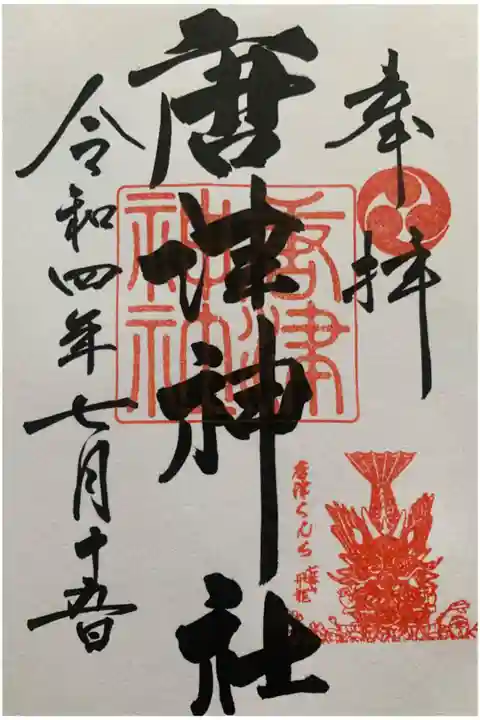 奉拝
唐津神社
唐津神社
令和四年七月十五日
唐津くんち